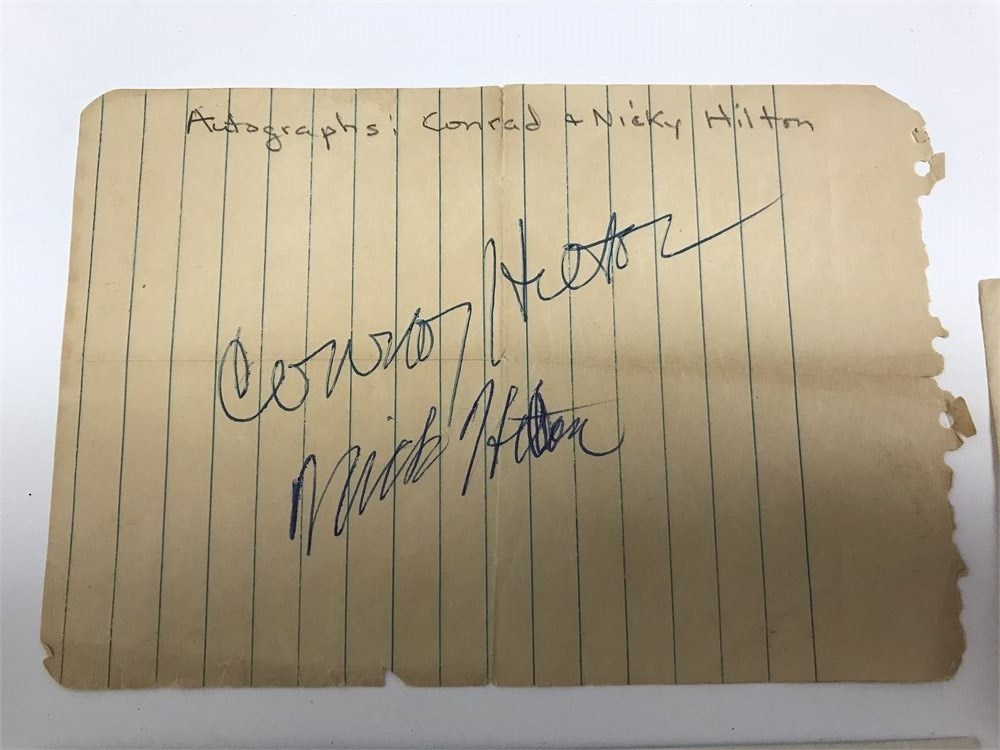 Autographs: Conrad & Nicky Hilton
Conrad Hilton
Nick Hilton